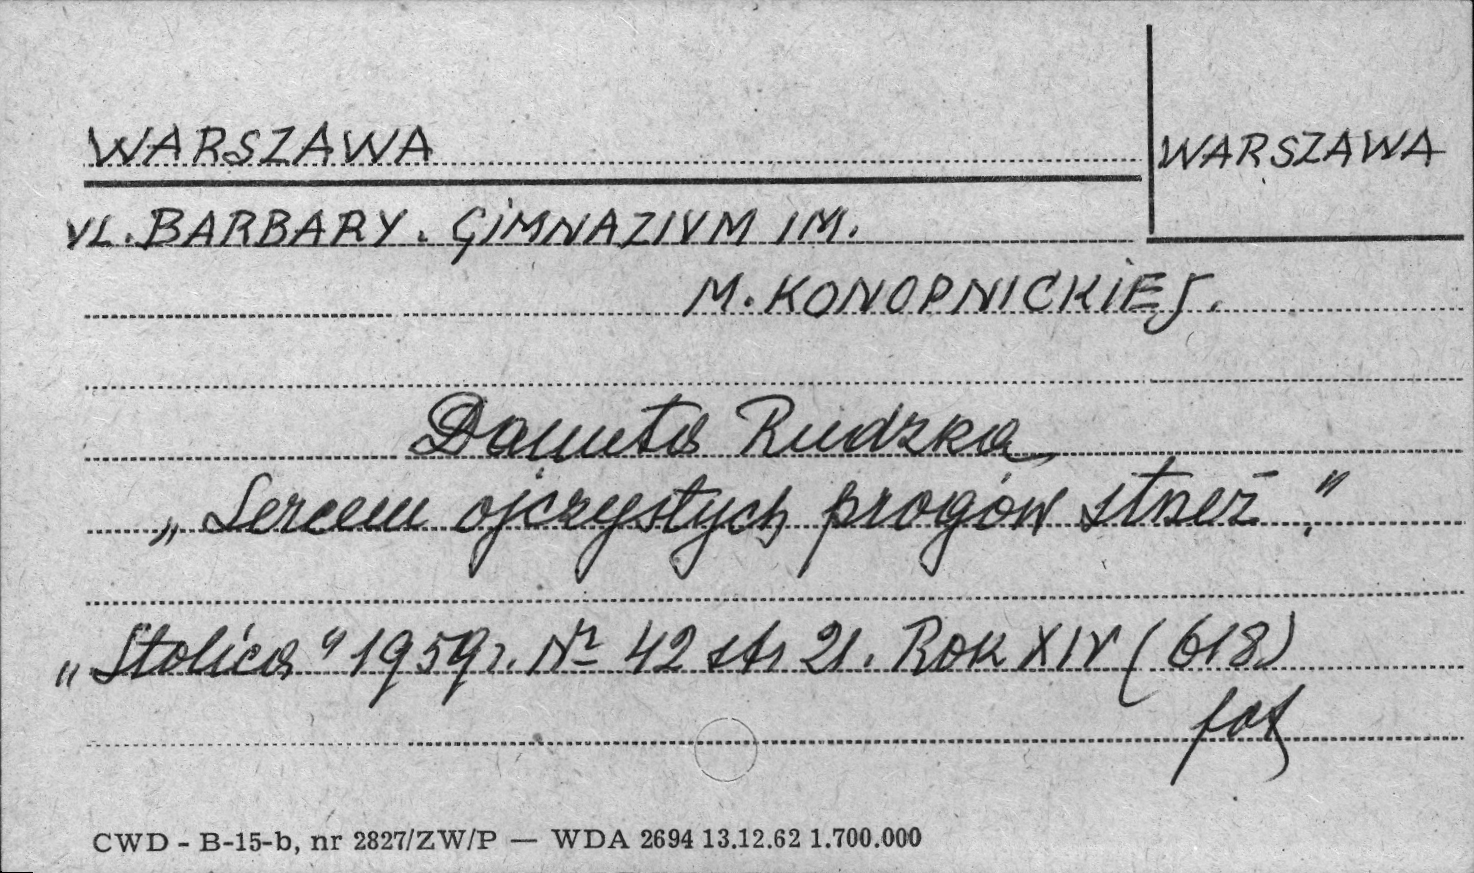 WARSZAWA
WARSZAWA
UL. BARBARY. GIMNAZIUM IM.
M. KONOPNICKIEJ.
Danuta Rudzka
„Sercem ojczystych progów strzeż".
„Stolica" 1959 r. Nr 42 str 21. Rok XIV (618)
fot
CWD - B-15-b, nr 2827/ZW/P — WDA 2694 13.12.62 1.700.000